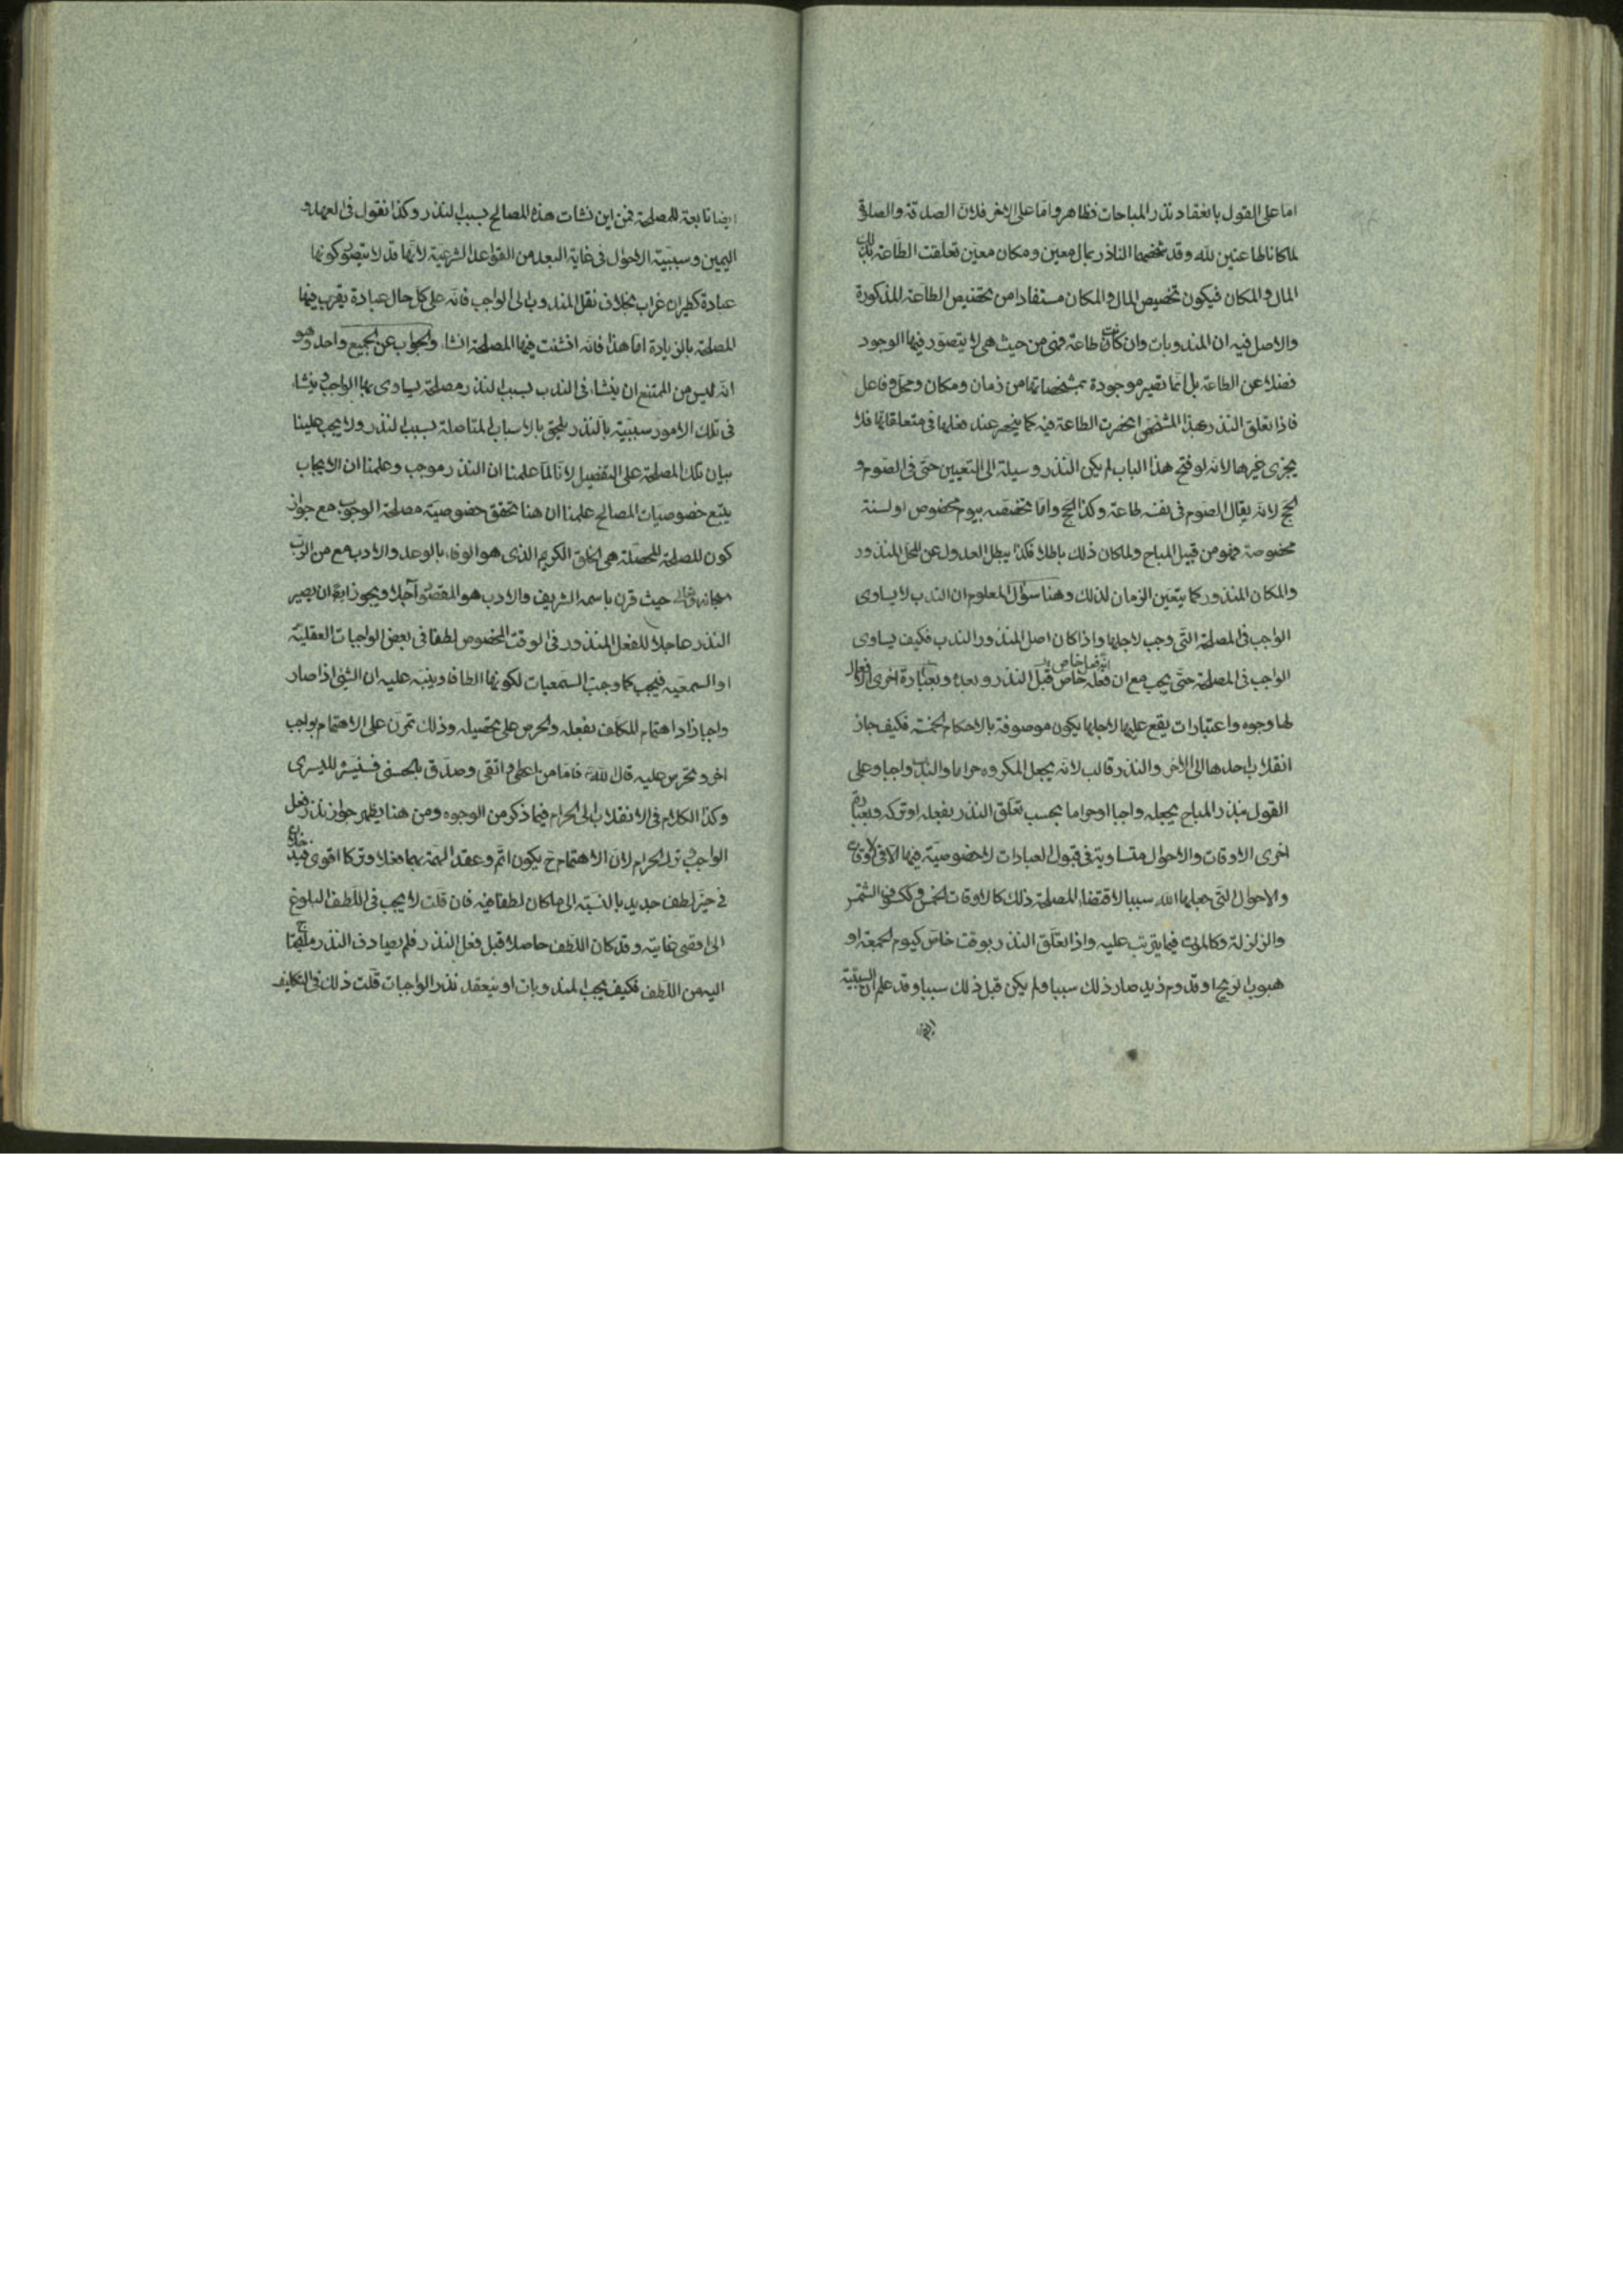 اما على القول بانعقاد نذر المباحات فظاهر واما على الاخر فلان الصدقة والصلوة
لما كانا طاعتين لله وقد شخصهما الناذر بمال معين ومكان معين تعلقت الطاعة بذلك
المال والمكان فيكون تخصيص المال والمكان مستفادا من تخصيص الطاعة المذكورة
والاصل فيه ان المندوبات وان كانت طاعة فهى من حيث هى لا يتصور فيها الوجود
فضلا عن الطاعة بل انما تصير موجودة بمشخصاتها من زمان ومكان ومحل وفاعل
فاذا تعلق النذر بهذا المشخص انحصرت الطاعة فيه كما ينحصر عند فعلها فى متعلقاتها فلا
يجزى غيرها لانه لو فتح هذا الباب لم يكن النذر وسيلة الى التعيين حتى فى الصوم و
الحج لانه يقال الصوم فى نفسه طاعة وكذا الحج واما تخصيصه بيوم مخصوص او لسنة
مخصوصة فهو من قبيل المباح ولما كان ذلك باطلا فكذا يبطل العدول عن المحل المنذور
والمكان المنذور كما يتعين الزمان لذلك وهنا سؤال المعلوم ان الندب لا يساوى
الواجب فى المصلحة التى وجب لاجلها واذا كان اصل المنذور الندب فكيف يساوى
الواجب فى المصلحة حتى يجب مع ان فعله خاص قبل النذر وبعده وبعبارة اخرى الافعال
لها وجوه واعتبارات يقع عليها لاجلها يكون موصوفة بالاحكام الخمسة فكيف جاز
انقلاب احدها الى الاخر والنذر قالب لانه يجعل المكروه حراما والندب واجبا وعلى
القول بنذر المباح يجعله واجبا او حراما بحسب تعلق النذر بفعله او تركه وبعبارة
اخرى الاوقات والاحوال متساوية فى قبول العبادات لا خصوصية فيها الا فى الاوقات
والاحوال التى جعلها الله سببا لاقتضاء المصلحة ذلك كالاوقات الخمس وككسوف الشمس
والزلزلة وكالموت فيما يترتب عليه واذا تعلق النذر بوقت خاص كيوم الجمعة او
هبوب الريح او قدوم زيد صار ذلك سببا ولم يكن قبل ذلك سببا وقد علم ان السببية
ايضا تابعة للمصلحة فمن اين نشات هذه المصالح بسبب النذر وكذا نقول فى العهد و
اليمين وسببية الاحوال فى غاية البعد من القواعد الشرعية لانها قد لا يتصور كونها
عبادة كطيران غراب بخلاف نقل المندوب الى الواجب فانه على كل حال عبادة يقرب فيها
المصلحة بالزيادة اما هذا فانه انشئت فيها المصلحة انشاء والجواب عن الجميع واحد وهو
انه ليس من الممتنع ان ينشاء فى الندب بسبب النذر مصلحة يساوى بها الواجب وينشاء
فى تلك الامور سببية بالنذر يلحق بالاسباب المتاصلة بسبب النذر ولا يجب علينا
بيان تلك المصلحة على التفصيل لانا لما علمنا ان النذر موجب وعلمنا ان الايجاب
يتبع خصوصيات المصالح علمنا ان هنا تحقق خصوصية مصلحة الوجوب مع جواز
كون المصلحة المحصلة هى الخلق الكريم الذى هو الوفاء بالوعد والادب مع من الرب
سبحانه وتعالى حيث قرن باسمه الشريف والادب هو المقصود آجلا ويجوز ايضا ان يصير
النذر عاجلا للفعل المنذور فى الوقت المخصوص لطفا فى بعض الواجبات العقلية
او السمعية فيجب كما وجبت السمعيات لكونها الطافا وينبه عليه ان الشئ اذا صار
واجبا زاد اهتمام المكلف بفعله والحرص على تحصيله وذلك تمرن على الاهتمام بواجب
اخر وتحرص عليه قال الله فاما من اعطى واتقى وصدق بالحسنى فسنيسره لليسرى
وكذا الكلام فى الانقلاب الى الحرام فيما ذكر من الوجوه ومن هنا يظهر جواز نذر فعل
الواجب وترك الحرام لان الاهتمام ح يكون اتم وعقد الهمة بهما فعلا وتركا اقوى فيدخل
فى حيز لطف جديد بالنسبة الى ما كان لطفا فيه فان قلت لا يجب فى اللطف البلوغ
الى اقصى غايته وقد كان اللطف حاصلا قبل فعل النذر فلم يصادف النذر ما يحتاج
اليه من اللطف فكيف يجب المندوبات او ينعقد نذر الواجبات قلت ذلك فى التكليف